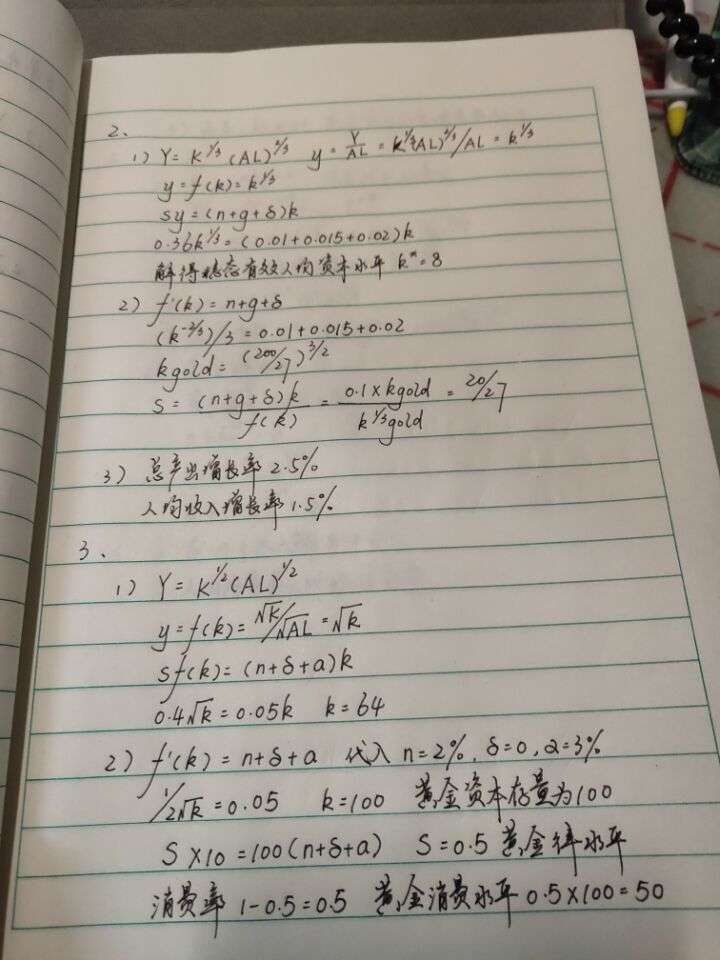 2、
1) Y = K^1/3 (AL)^2/3 y = Y/AL = K^1/3(AL)^2/3/AL = k^1/3
y = f(k) = k^1/3
sy = (n+g+δ)k
0.36k^1/3 = (0.01+0.015+0.02)k
解得稳态有效人均资本水平 k* = 8
2) f'(k) = n+g+δ
(k^-2/3)/3 = 0.01+0.015+0.02
kgold = (200/27)^3/2
S = (n+g+δ)k/f(k) = 0.1×kgold/k^1/3gold = 20/27
3) 总产出增长率 2.5%
人均收入增长率 1.5%
3、
1) Y = K^1/2 (AL)^1/2
y = f(k) = √K/√AL = √k
Sf(k) = (n+δ+a)k
0.4√k = 0.05k k = 64
2) f'(k) = n+δ+a 代入 n=2%, δ=0, a=3%
1/2√k = 0.05 k=100 黄金资本存量为100
S×10 = 100(n+δ+a) S=0.5 黄金律水平
消费率 1-0.5=0.5 黄金消费水平 0.5×100=50